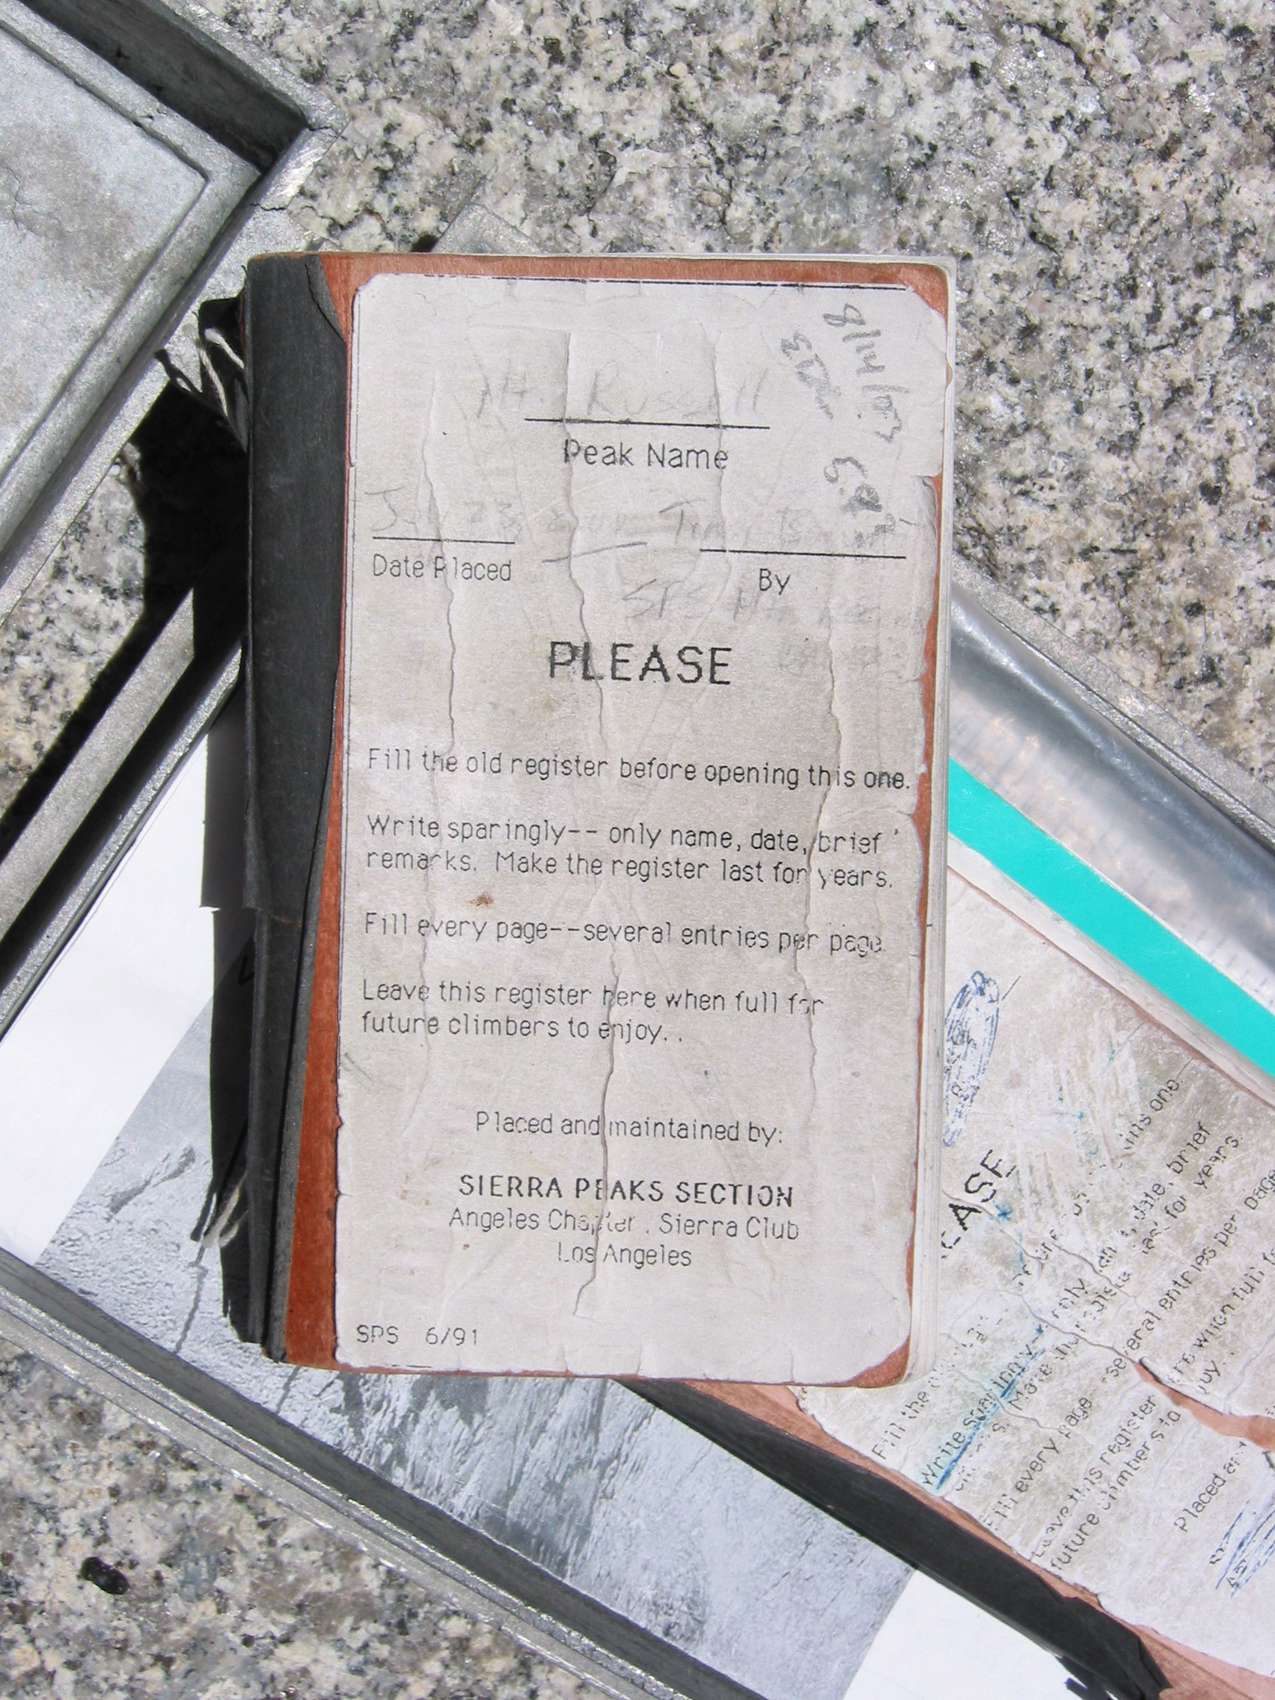 Mt. Russell
Peak Name
8/14/03
Date Placed
By
SPS
PLEASE
Fill the old register before opening this one.
Write sparingly-- only name, date, brief
remarks. Make the register last for years.
Fill every page--several entries per page.
Leave this register here when full for
future climbers to enjoy..
Placed and maintained by:
SIERRA PEAKS SECTION
Angeles Chapter, Sierra Club
Los Angeles
SPS 6/91
EASE
Fill the
this one
Write sparingly-- only date, brief
s. Make the last for years
Fill every page--several entries per page
Leave this register here when full f
future climbers to
Placed and